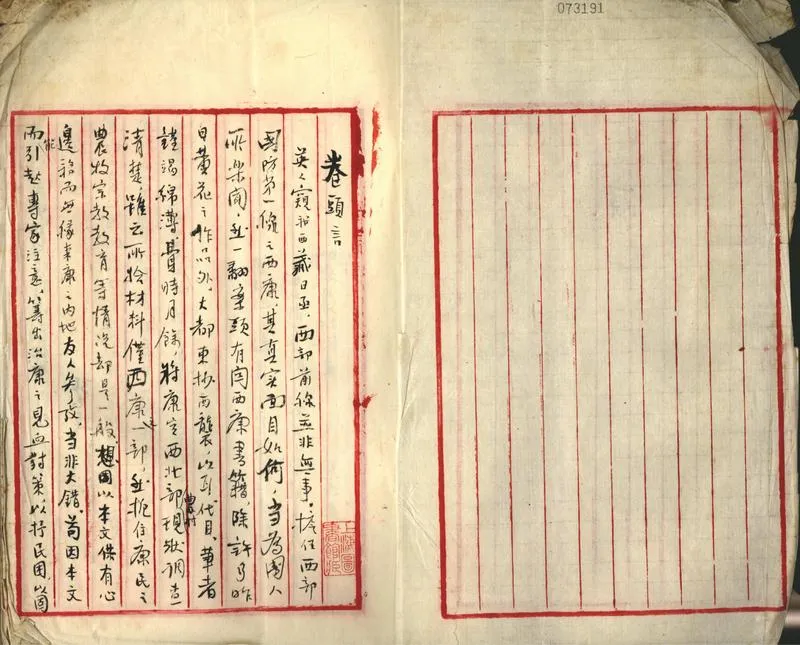 073191
卷頭言
英人窺探西藏日亟，西部前線並非無事，擔任西部
國防第一線之西康，其真實面目如何，当為國人
所樂聞，然一翻案頭有関西康書籍，除許多昨
日黃花之作品外，大都東抄西襲，以耳代目，筆者
竭綿薄，費時月餘，將康定西北部農村現狀調查
清楚，雖云所拾材料僅西康一部，然拒住康民之
農牧宗教教育等情況却是一般，想國以本文供有心
邊務而無緣來康之內地友人參攷，当非大錯，苟因本文
而能引起專家注意，籌出治康之見血對策以抒民困，
上海圖書館藏